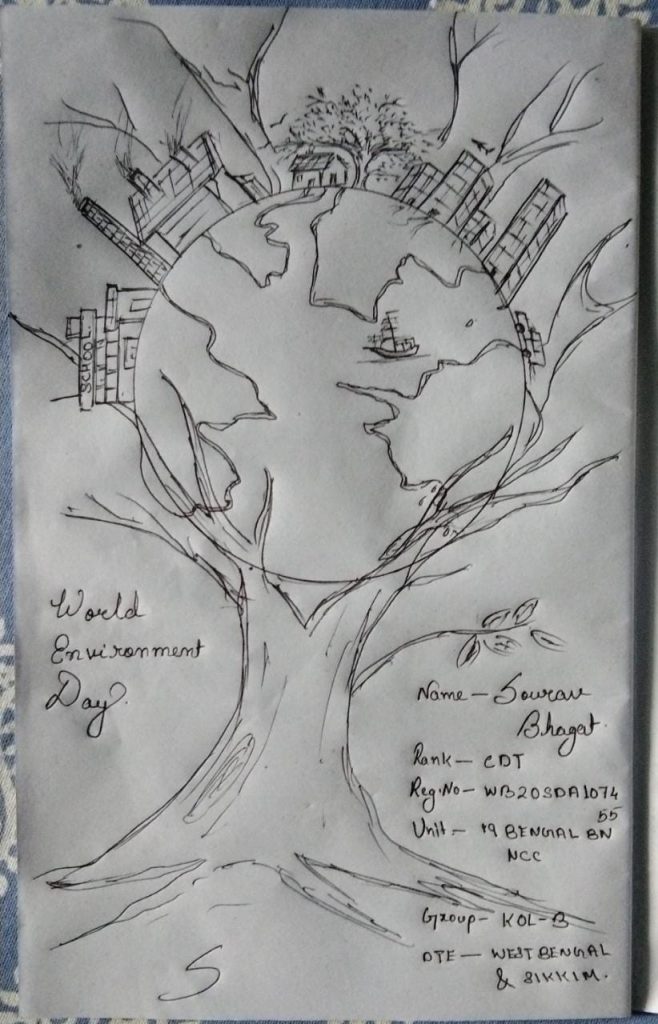 SCHOOL
World
Environment
Day
Name - Sourav
Bhagat.
Rank - CDT
Reg.No - WB20SDA1074
55
Unit - 19 BENGAL BN
NCC
Group - KOL-B
DTE - WEST BENGAL
& SIKKIM.
S